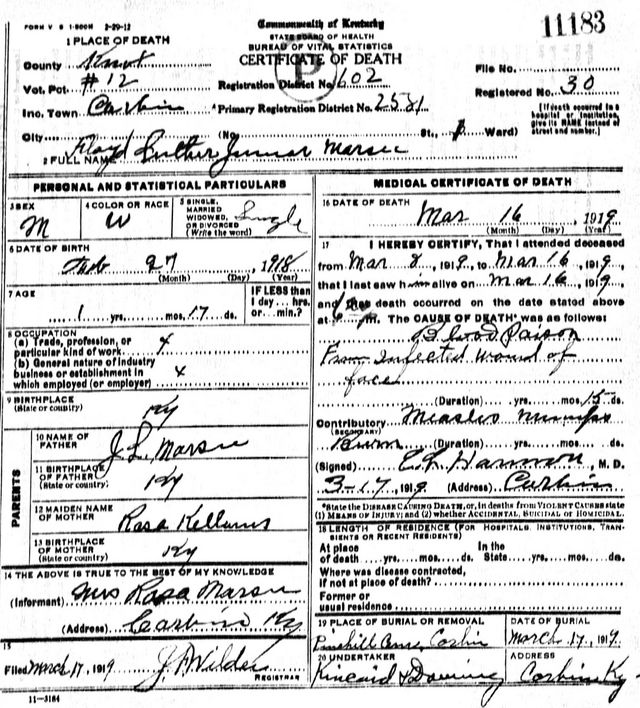 FORM V S 1-500M 2-29-12
Commonwealth of Kentucky
11183
STATE BOARD OF HEALTH
BUREAU OF VITAL STATISTICS
CERTIFICATE OF DEATH
1 PLACE OF DEATH
County Knox
Vot. Pct. #12
Inc. Town Corbin
City
P
Registration District No. 602
Primary Registration District No. 2521
File No.
Registered No. 30
(No. St., Ward)
[If death occurred in a hospital or institution, give its NAME instead of street and number.]
2 FULL NAME Floyd Luther Junior Marsee
PERSONAL AND STATISTICAL PARTICULARS
3 SEX M
4 COLOR OR RACE W
5 SINGLE, MARRIED WIDOWED, OR DIVORCED (Write the word) Single
6 DATE OF BIRTH
Feb 27 1918
(Month) (Day) (Year)
7 AGE
1 yrs. mos. 17 ds.
IF LESS than 1 day... hrs. or min.?
8 OCCUPATION
(a) Trade, profession, or particular kind of work x
(b) General nature of industry business or establishment in which employed (or employer) x
9 BIRTHPLACE
(State or country) Ky
PARENTS
10 NAME OF FATHER J. L. Marsee
11 BIRTHPLACE OF FATHER (State or country) Ky
12 MAIDEN NAME OF MOTHER Rosa Kellums
13 BIRTHPLACE OF MOTHER (State or country) Ky
14 THE ABOVE IS TRUE TO THE BEST OF MY KNOWLEDGE
(Informant) Mrs Rosa Marsee
(Address) Corbin Ky
15
Filed March 17, 1919 J. F. Wilder
REGISTRAR
11-3184
MEDICAL CERTIFICATE OF DEATH
16 DATE OF DEATH
Mar 16, 1919
(Month) (Day) (Year)
17 I HEREBY CERTIFY, That I attended deceased
from Mar 2, 1919, to Mar 16, 1919,
that I last saw h alive on Mar 16, 1919,
and that death occurred on the date stated above
at m. The CAUSE OF DEATH* was as follows:
Blood Poison
From Infected wound of
face
(Duration) yrs. mos. 15 ds.
Contributory Measles Mumps
(SECONDARY)
Burn (Duration) yrs. mos. ds.
(Signed) Harmon, M. D.
3-17, 1919 (Address) Corbin
*State the DISEASE CAUSING DEATH, or, in deaths from VIOLENT CAUSES state
(1) MEANS OF INJURY; and (2) whether ACCIDENTAL, SUICIDAL or HOMICIDAL.
18 LENGTH OF RESIDENCE (FOR HOSPITALS, INSTITUTIONS, TRANSIENTS OR RECENT RESIDENTS)
At place of death yrs. mos. ds.
In the State yrs. mos. ds.
Where was disease contracted,
if not at place of death?
Former or
usual residence
19 PLACE OF BURIAL OR REMOVAL
Corbin
DATE OF BURIAL
March 17, 1919
20 UNDERTAKER
Kincaid &
ADDRESS
Corbin Ky